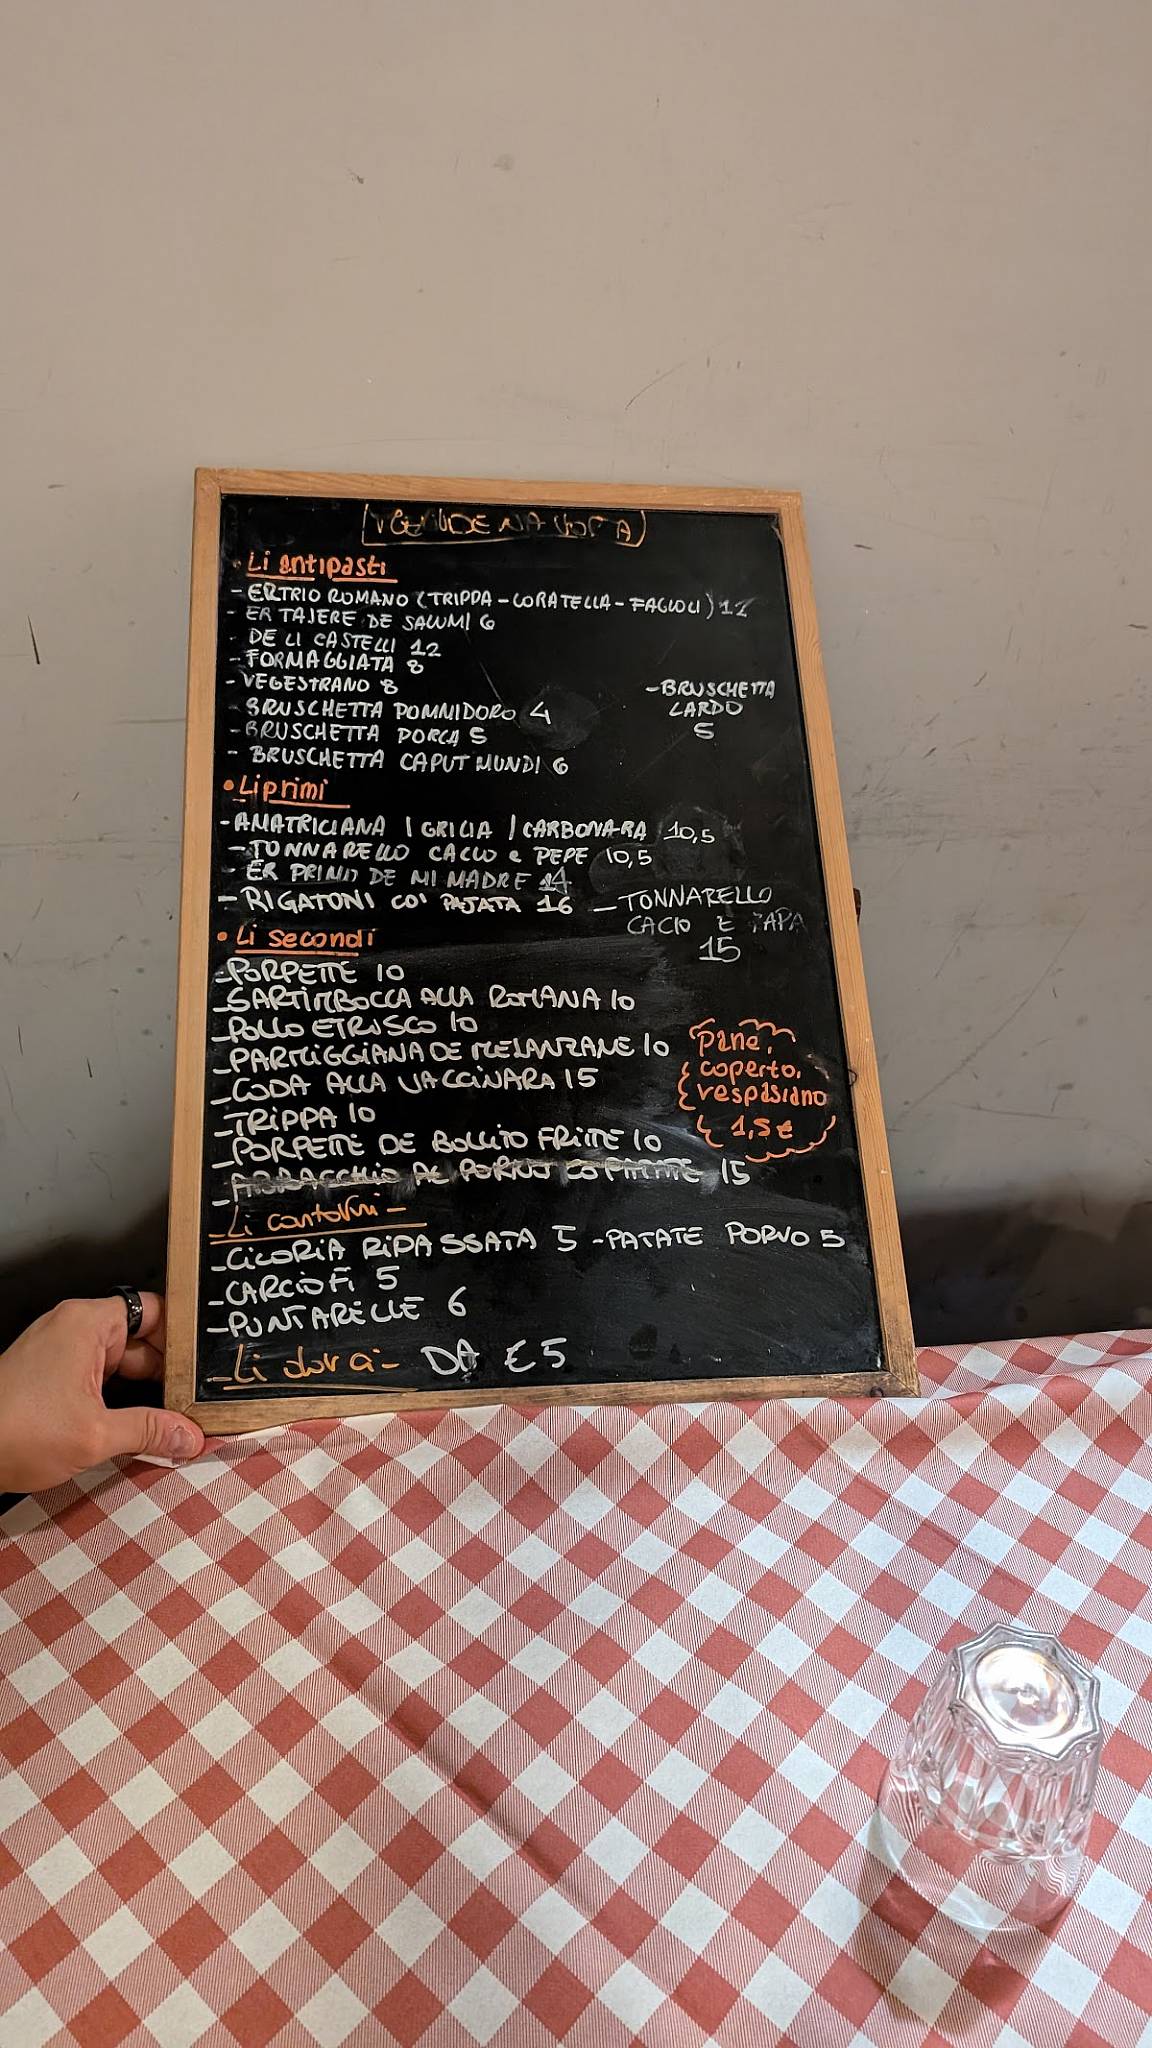 Li antipasti
- ER TRIO ROMANO (TRIPPA - CORATELLA - FAGIOLI) 12
- ER TAJERE DE SALUMI 6
- DE LI CASTELLI 12
- FORMAGGIATA 8
- VEGESTRANO 8
- BRUSCHETTA POMMIDORO 4
- BRUSCHETTA PORCA 5
- BRUSCHETTA CAPUT MUNDI 6
- BRUSCHETTA
LARDO
5
• Li primi
- AMATRICIANA / GRICIA / CARBONARA 10,5
- TONNARELLO CACIO e PEPE 10,5
- ER PRIMO DE MI MADRE 14
- RIGATONI CO' PAJATA 16
- TONNARELLO
CACIO E
15
• Li secondi
- PORPETTE 10
- SARTIMBOCCA ALLA ROMANA 10
- POLLO ETRUSCO 10
- PARMIGGIANA DE MELANZANE 10
- CODA ALLA VACCINARA 15
- TRIPPA 10
- PORPETTE DE BOLLITO FRITTE 10
- ABBACCHIO AL FORNO CO PATATE 15
Pane,
coperto,
vespasiano
1,5€
- Li contorni -
- CICORIA RIPASSATA 5 - PATATE FORNO 5
- CARCIOFI 5
- PUNTARELLE 6
- Li dorci - DA € 5